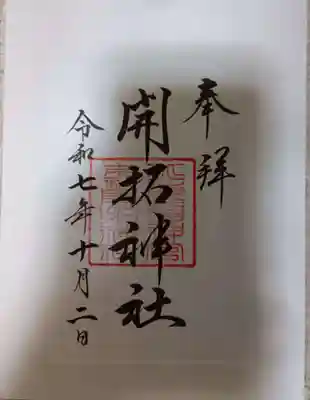 奉拝
開拓神社
令和七年十月二日